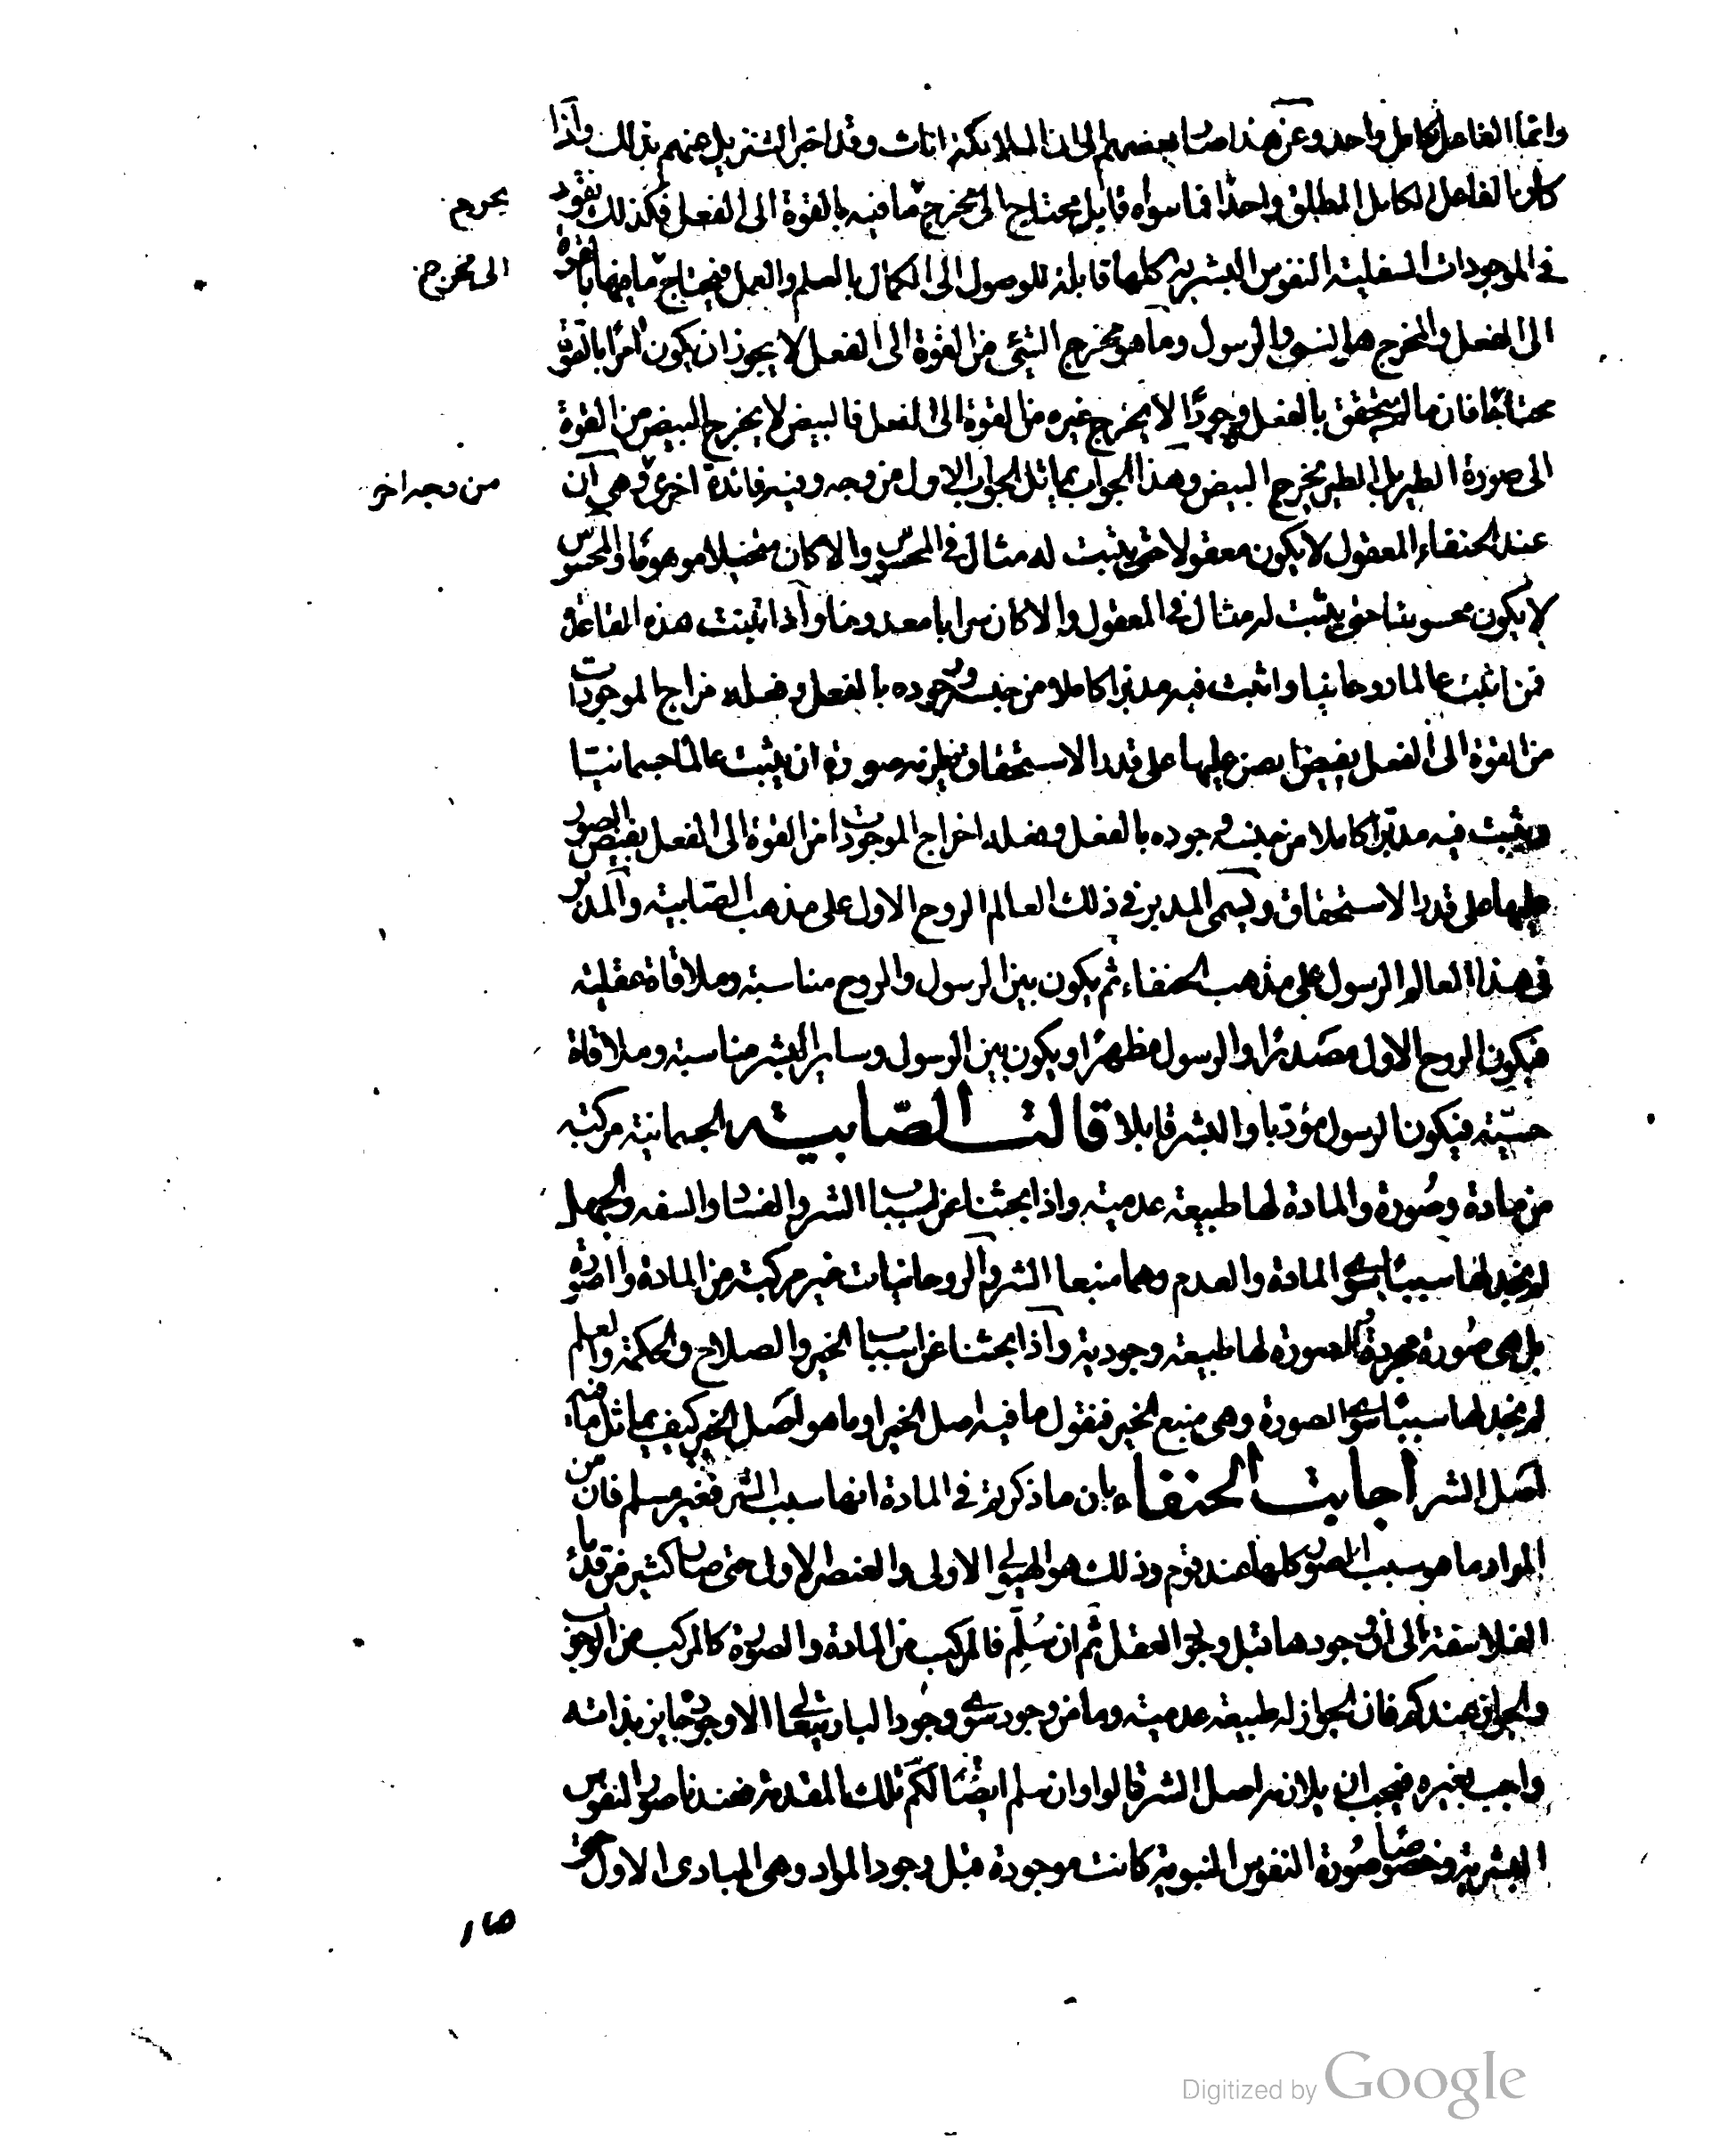 وانما الفاعل الكامل واحد وعن هذا صار بعضهم الى ان الملائكة اناث وقد اخبر التنزيل عنهم بذلك واذا
كان الفاعل الكامل المطلق واحدا فما سواه قابل محتاج الى مخرج ما فيه بالقوة الى الفعل فكذلك نقول
يخرج
في الموجودات السفلية النفوس البشرية كلها قابلة للوصول الى الكمال بالعلم والعمل فيحتاج ما فيها بالقوة
الى مخرج
الى الفعل والمخرج هو النبي والرسول وما هو مخرج الشئ من القوة الى الفعل لا يجوز ان يكون امرا بالقوة
محتاجا فان ما لم يتحقق بالفعل وجودا لا يخرج غيره من القوة الى الفعل فالبيض لا يخرج البيض من القوة
الى صورة الطير بل الطير يخرج البيض وهذا الجواب يماثل الجواب الاول من وجه وفيه فائدة اخرى وهي ان
من وجه اخر
عند الحنفاء المعقول لا يكون معقولا حتى يثبت له مثال في المحسوس والا كان متخيلا موهوما والمحسوس
لا يكون محسوسا حتى يثبت له مثال في المعقول والا كان سرابا معدوما واذا ثبتت هذه القاعدة
فمن اثبت عالما روحانيا واثبت فيه مدبرا كاملا من جنسه وجوده بالفعل وفعله اخراج الموجودات
من القوة الى الفعل بفيض الصور عليها على قدر الاستحقاق فيلزمه ضرورة ان يثبت عالما جسمانيا
ويثبت فيه مدبرا كاملا من جنسه وجوده بالفعل وفعله اخراج الموجودات من القوة الى الفعل بفيض الصور
عليها على قدر الاستحقاق ويسمى المدبر في ذلك العالم الروح الاول على مذهب الصابية والمدبر
في هذا العالم الرسول على مذهب الحنفاء ثم يكون بين الرسول والروح مناسبة وملاقاة عقلية
فيكون الروح الاول مصدرا والرسول مظهرا ويكون بين الرسول وساير البشر مناسبة وملاقاة
حسية فيكون الرسول مؤديا والبشر قابلا قالت الصابية الجسمانية مركبة
من مادة وصورة والمادة لها طبيعة عدمية واذا بحثنا عن اسباب الشر والفساد والسفه والجهل
لم نجد لها سببا سوى المادة والعدم وهما منبعا الشر والروحانيات غير مركبة من المادة والصورة
بل هي صورة مجردة والصورة لها طبيعة وجودية واذا بحثنا عن اسباب الخير والصلاح والحكمة والعلم
لم نجد لها سببا سوى الصورة وهي منبع الخير فنقول ما فيه اصل الخير او ما هو اصل الخير كيف يماثل ما فيه
اصل الشر اجابت الحنفاء بان ما ذكرتم في المادة انها سبب الشر فغير مسلم فان من
المواد ما هو سبب الصور كلها عند قوم وذلك هو الهيولى الاولى والعنصر الاول حتى صار كثير من قدماء
الفلاسفة الى ان وجودها قبل وجود العقل ثم ان سلم فالمركب من المادة والصورة كالمركب من الوجوب
والجواز عندكم فان الجواز له طبيعة عدمية وما من وجود سوى وجود الباري تعالى الا وجوده جايز بذاته
واجب بغيره فيجب ان يلازمه اصل الشر قالوا وان سلم ايضا لكم تلك المقدمة فعندنا صور النفوس
البشرية وخصوصا صورة النفوس النبوية كانت موجودة قبل وجود المواد وهي المبادى الاول حتى
صار
Digitized by Google